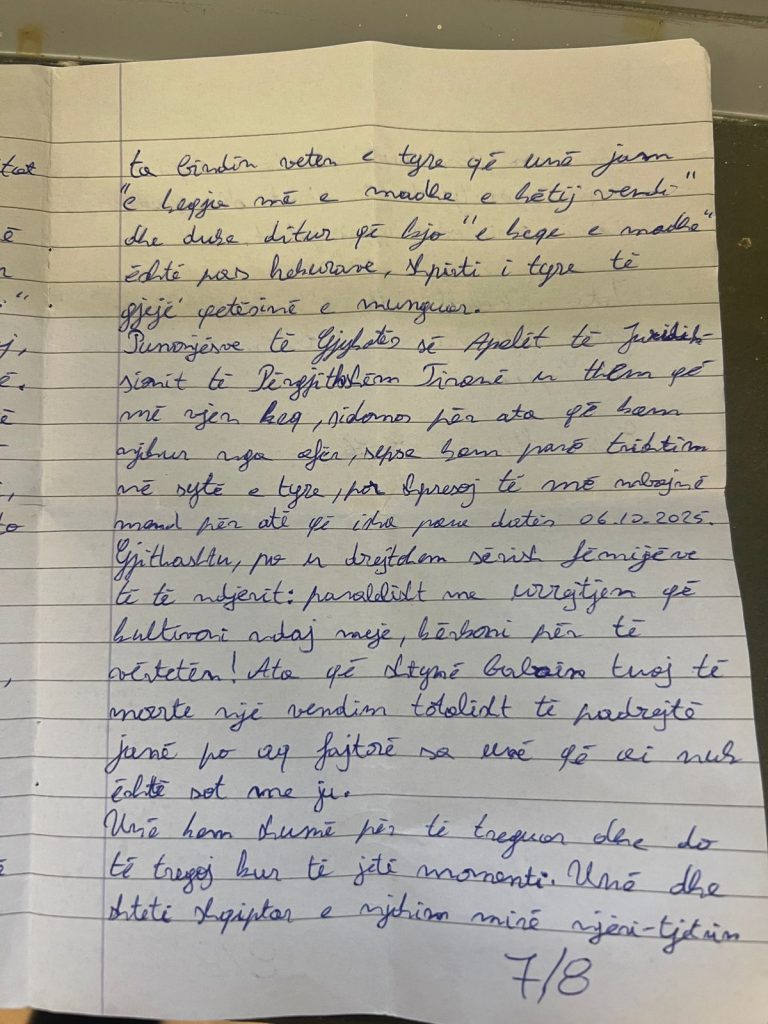 ta bindin veten e tyre që unë jam
"e keqja më e madhe e këtij vendi"
dhe duke ditur që kjo "e keqe e madhe"
është pas hekurave, shpirti i tyre të
gjejë qetësinë e munguar.
Punonjësve të Gjykatës së Apelit të Juridik-
sionit të Përgjithshëm Tiranë u them që
më vjen keq, sidomos për ata që kam
njohur nga afër, sepse kam parë trishtim
në sytë e tyre, por shpresoj të më mbajnë
mend për atë që isha para datës 06.10.2025.
Gjithashtu, po u drejtohem sërish fëmijëve
të të ndjerit: paralelisht me urrejtjen që
kultivoni ndaj meje, kërkoni për të
vërtetën! Ata që shtynë babain tuaj të
marrte një vendim totalisht të padrejtë
janë po aq fajtorë sa unë që ai nuk
është sot me ju.
Unë kam shumë për të treguar dhe do
të tregoj kur të jetë momenti. Unë dhe
shteti shqiptar e njohim mirë njëri-tjetrin
7/8
tat
ë